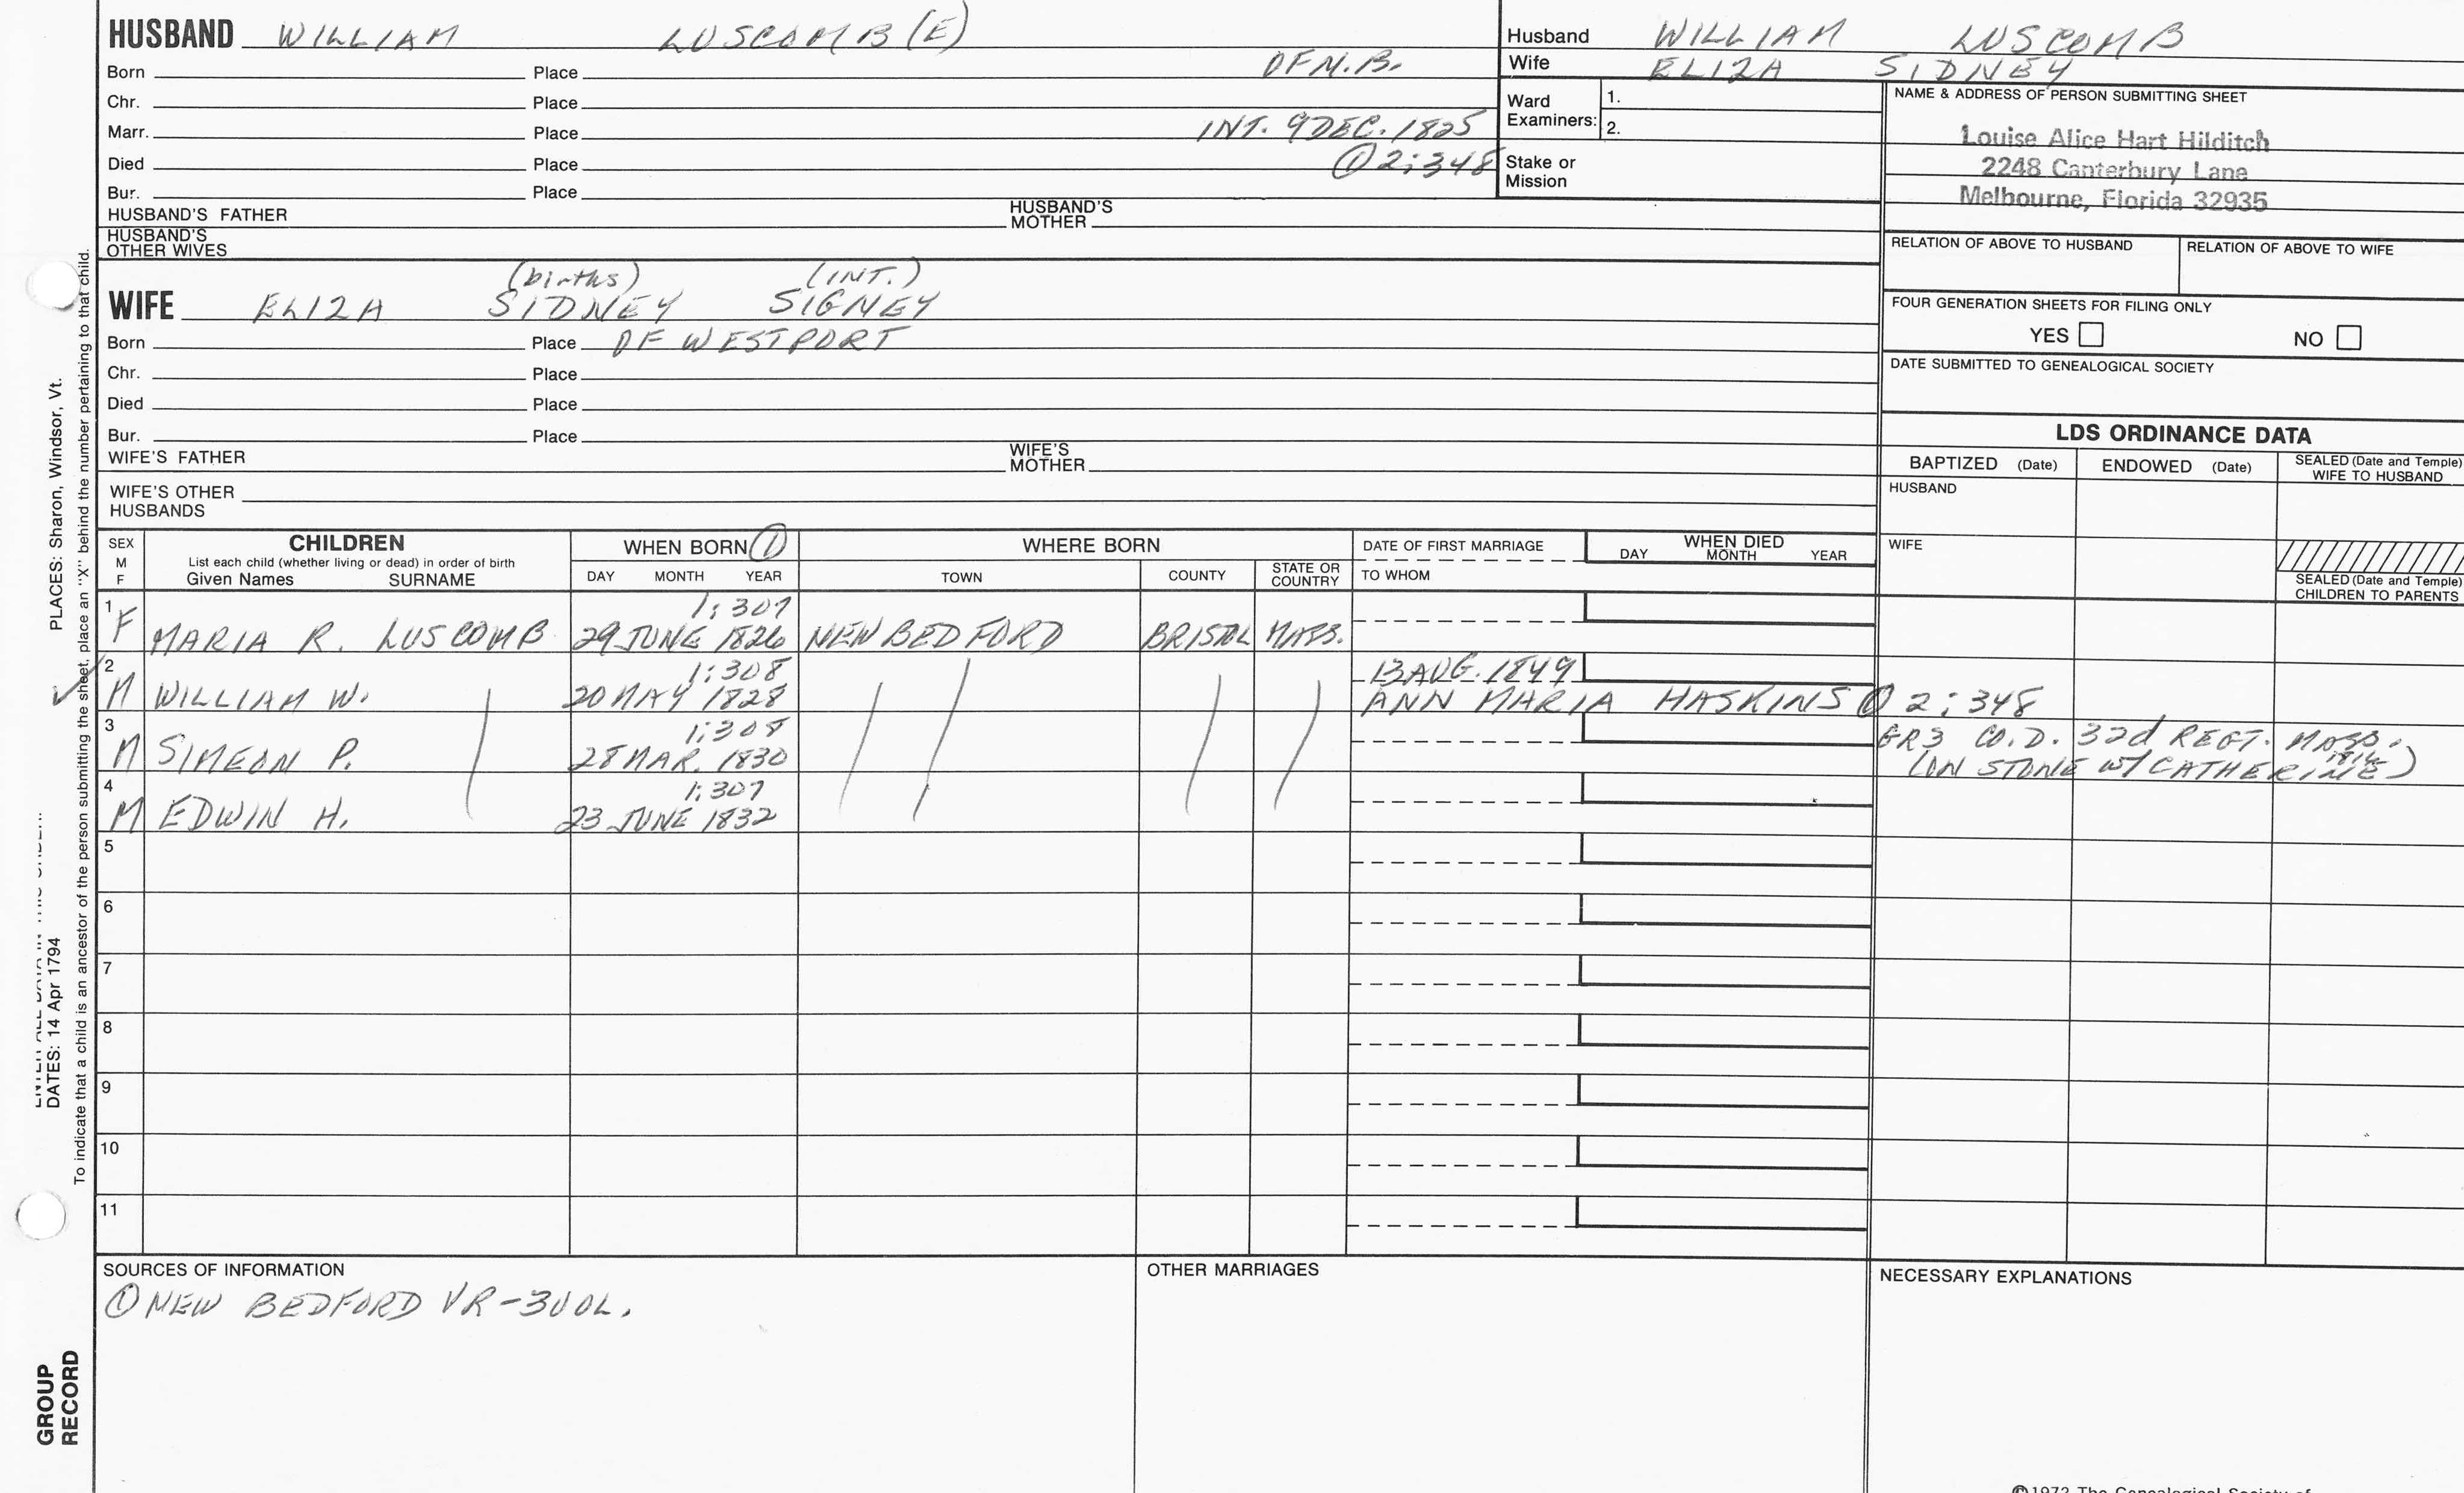 HUSBAND WILLIAM LUSCOMB(E)
Born Place OF N.B.
Chr. Place
Marr. Place INT. 9 DEC. 1825
Died Place ① 2:348
Bur. Place
HUSBAND'S FATHER HUSBAND'S MOTHER
HUSBAND'S OTHER WIVES
(births) (INT.)
WIFE ELIZA SIDNEY SIGNEY
Born Place OF WESTPORT
Chr. Place
Died Place
Bur. Place
WIFE'S FATHER WIFE'S MOTHER
WIFE'S OTHER HUSBANDS
Husband WILLIAM LUSCOMB
Wife ELIZA SIDNEY
Ward Examiners: 1.
2.
Stake or Mission
NAME & ADDRESS OF PERSON SUBMITTING SHEET
Louise Alice Hart Hilditch
2248 Canterbury Lane
Melbourne, Florida 32935
RELATION OF ABOVE TO HUSBAND RELATION OF ABOVE TO WIFE
FOUR GENERATION SHEETS FOR FILING ONLY
YES NO
DATE SUBMITTED TO GENEALOGICAL SOCIETY
LDS ORDINANCE DATA
BAPTIZED (Date) ENDOWED (Date) SEALED (Date and Temple) WIFE TO HUSBAND
HUSBAND
WIFE
SEALED (Date and Temple) CHILDREN TO PARENTS
SEX M F
CHILDREN
List each child (whether living or dead) in order of birth
Given Names SURNAME
WHEN BORN ①
DAY MONTH YEAR
WHERE BORN
TOWN COUNTY STATE OR COUNTRY
DATE OF FIRST MARRIAGE
TO WHOM
WHEN DIED
DAY MONTH YEAR
1 1:307
F MARIA R. LUSCOMB 29 JUNE 1826 NEW BEDFORD BRISTOL MASS.
2 1:308 13 AUG. 1849
M WILLIAM W. 20 MAY 1828 ANN MARIA HASKINS ① 2:348
3 1:308 GR3 CO. D. 32d REGT. MASS.
M SIMEON P. 28 MAR. 1830 (ON STONE W/ CATHERINE)
4 1:307
M EDWIN H. 23 JUNE 1832
5
6
7
8
9
10
11
SOURCES OF INFORMATION
① NEW BEDFORD VR-3VOL.
OTHER MARRIAGES
NECESSARY EXPLANATIONS
©1972 The Genealogical Society of
PLACES: Sharon, Windsor, Vt.
DATES: 14 Apr 1794
To indicate that a child is an ancestor of the person submitting the sheet, place an "X" behind the number pertaining to that child.
GROUP RECORD